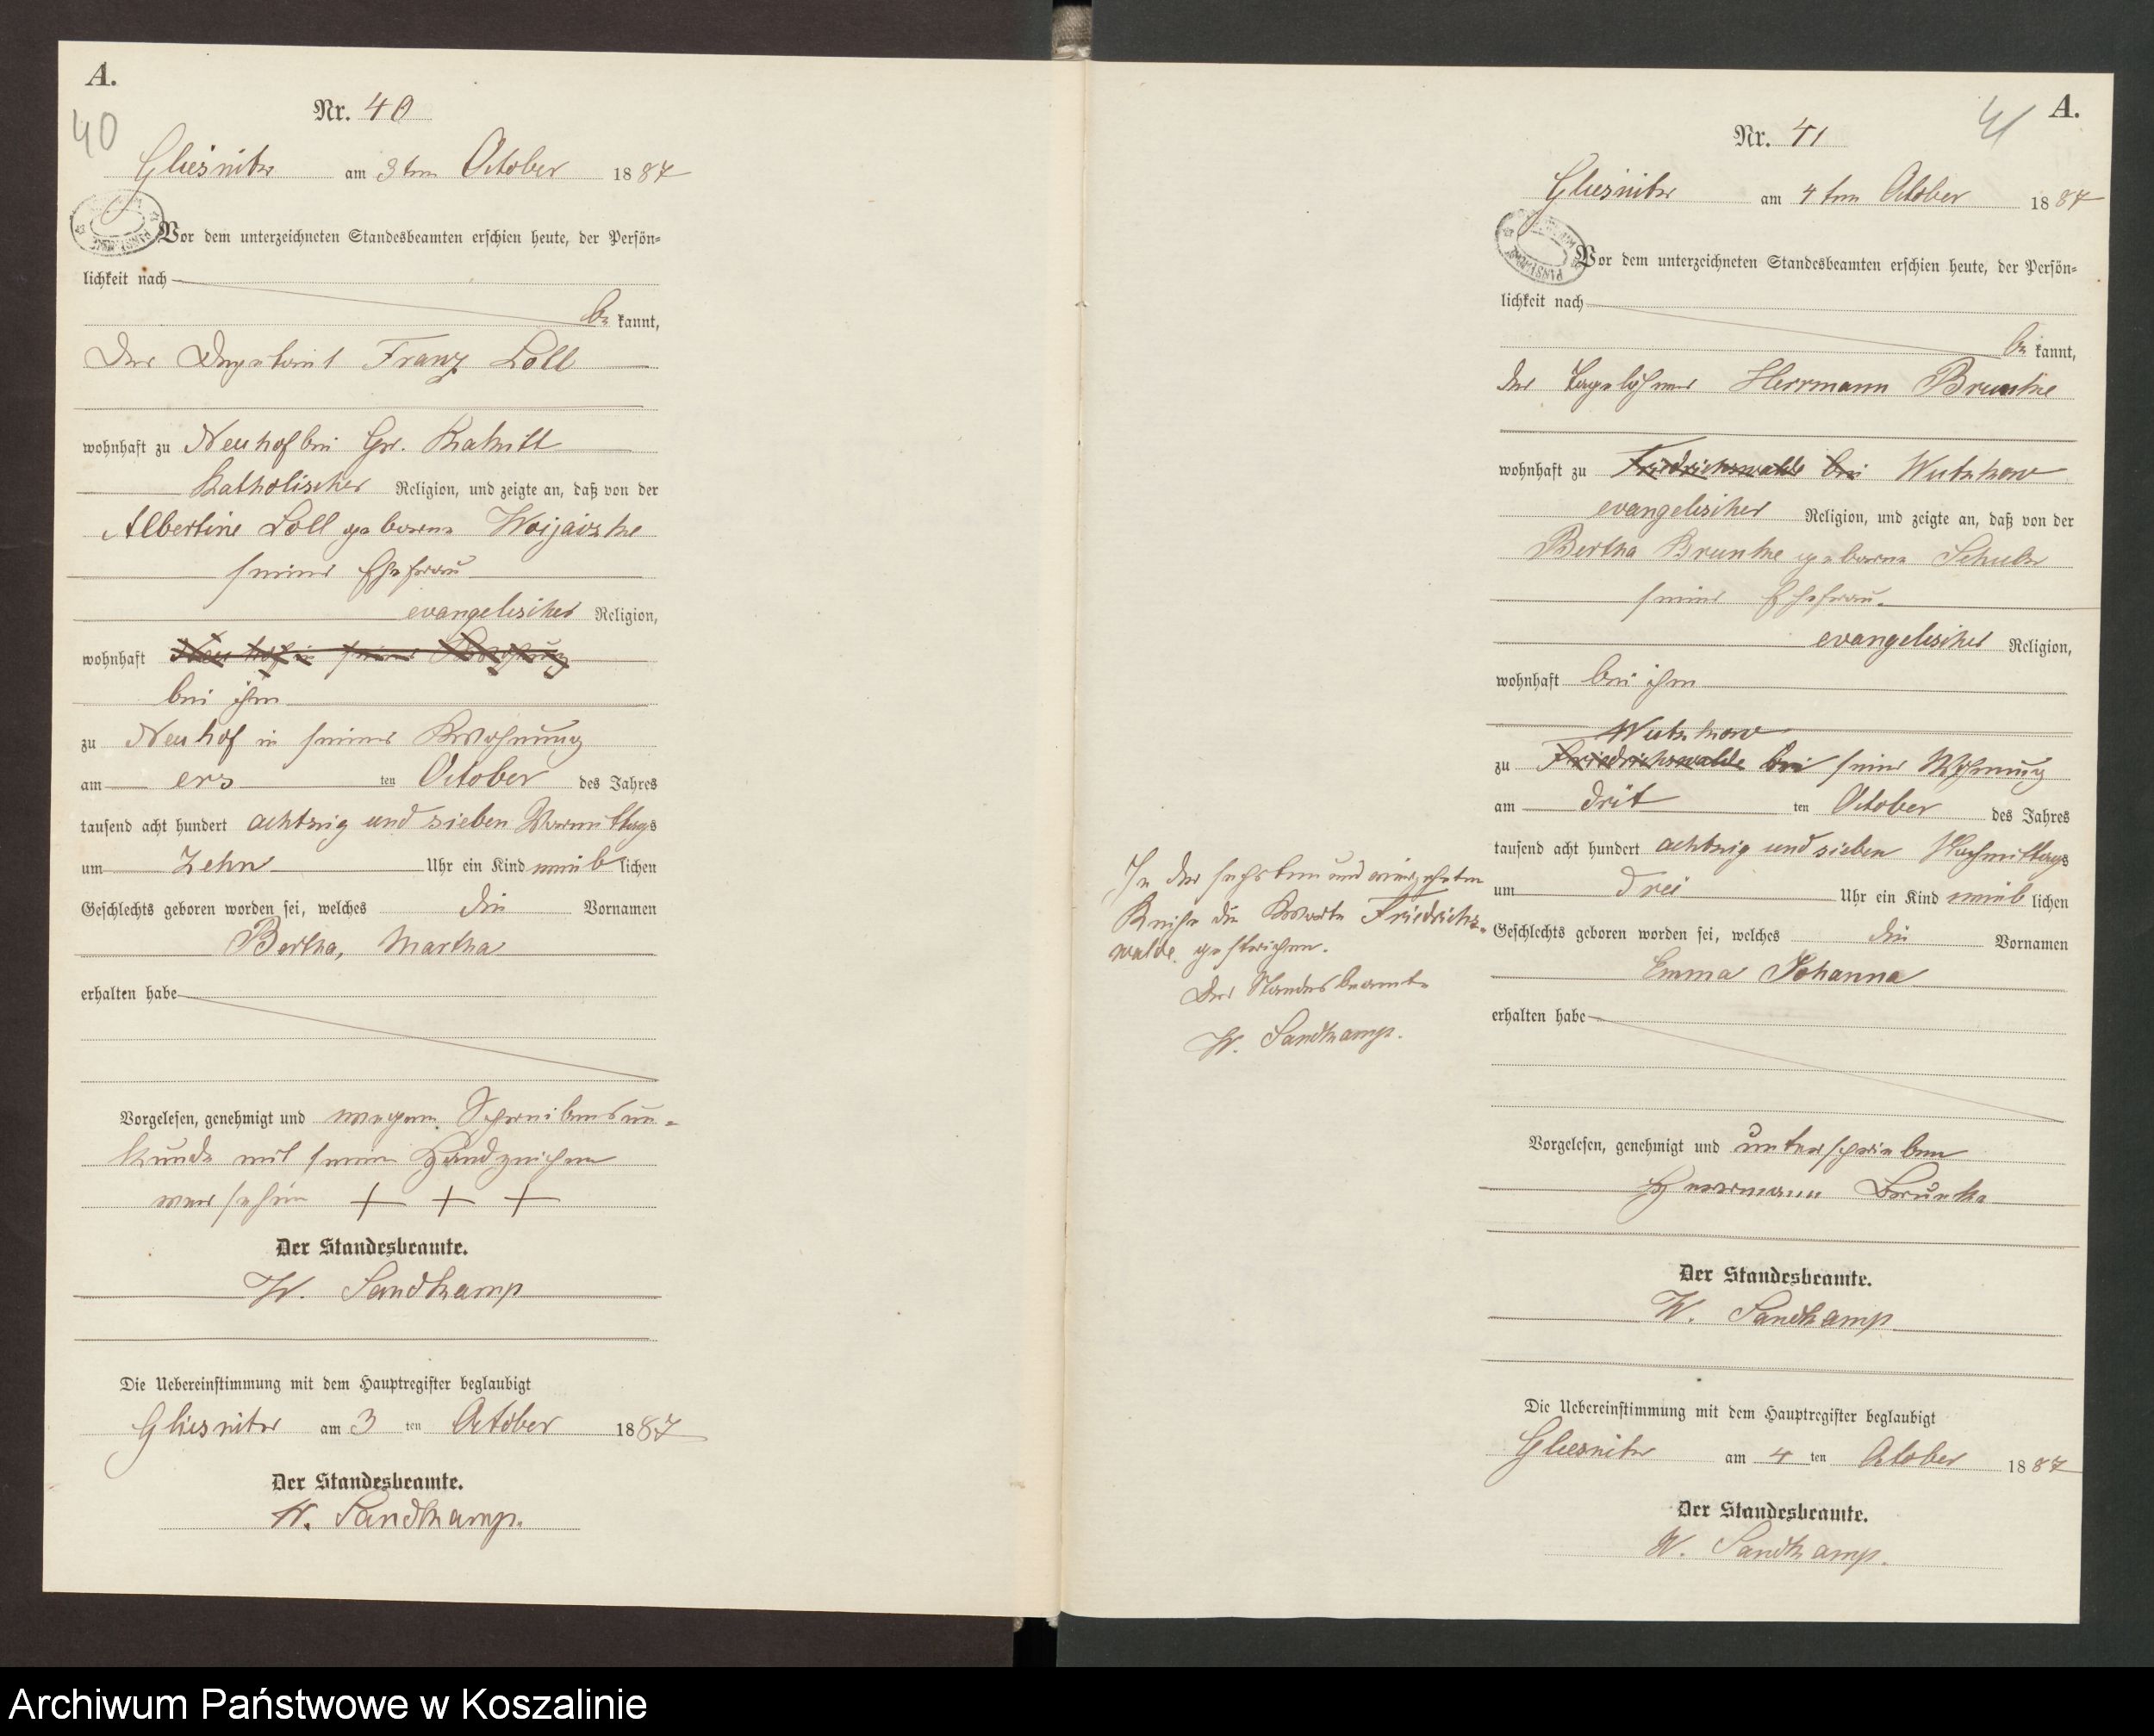 A.
40
Nr. 40
Gliesnitz am 3ten October 1887
Vor dem unterzeichneten Standesbeamten erschien heute, der Persön=
lichkeit nach
be kannt,
Der Deputant Franz Loll
wohnhaft zu Neuhof bei Gr. Rakitt
Katholischer Religion, und zeigte an, daß von der
Albertine Loll geborene
seiner Ehefrau
evangelischer Religion,
wohnhaft Neuhof in seiner Wohnung
bei ihm
zu Neuhof in seiner Wohnung
am ers ten October des Jahres
tausend acht hundert achtzig und sieben Vormittags
um Zehn Uhr ein Kind weib lichen
Geschlechts geboren worden sei, welches die Vornamen
Bertha, Martha
erhalten habe
Vorgelesen, genehmigt und wegen Schreibensun=
kunde mit seinen Handzeichen
versehen + + +
Der Standesbeamte.
W. Sandkamp
Die Uebereinstimmung mit dem Hauptregister beglaubigt
Gliesnitz am 3 ten October 1887
Der Standesbeamte.
W. Sandkamp.
A.
41
Nr. 41
Gliesnitz am 4ten October 1887
Vor dem unterzeichneten Standesbeamten erschien heute, der Persön=
lichkeit nach
be kannt,
der Tagelöhner Herrmann Brunke
wohnhaft zu Friedrichswalde bei Wutzkow
evangelischer Religion, und zeigte an, daß von der
Bertha Brunke geborne Schulz
seiner Ehefrau.
evangelischer Religion,
wohnhaft bei ihm
Wutzkow
zu Friedrichswalde bei seiner Wohnung
am drit ten October des Jahres
tausend acht hundert achtzig und sieben Nachmittags
um drei Uhr ein Kind weib lichen
Geschlechts geboren worden sei, welches die Vornamen
Emma Johanna
erhalten habe
In der sechsten und vierzehnten
Reihe die Worte Friedrichs=
walde gestrichen.
Der Standesbeamte
W. Sandkamp.
Vorgelesen, genehmigt und unterschrieben
Herrmann Brunke
Der Standesbeamte.
W. Sandkamp
Die Uebereinstimmung mit dem Hauptregister beglaubigt
Gliesnitz am 4 ten October 1887
Der Standesbeamte.
W. Sandkamp.
Archiwum Państwowe w Koszalinie